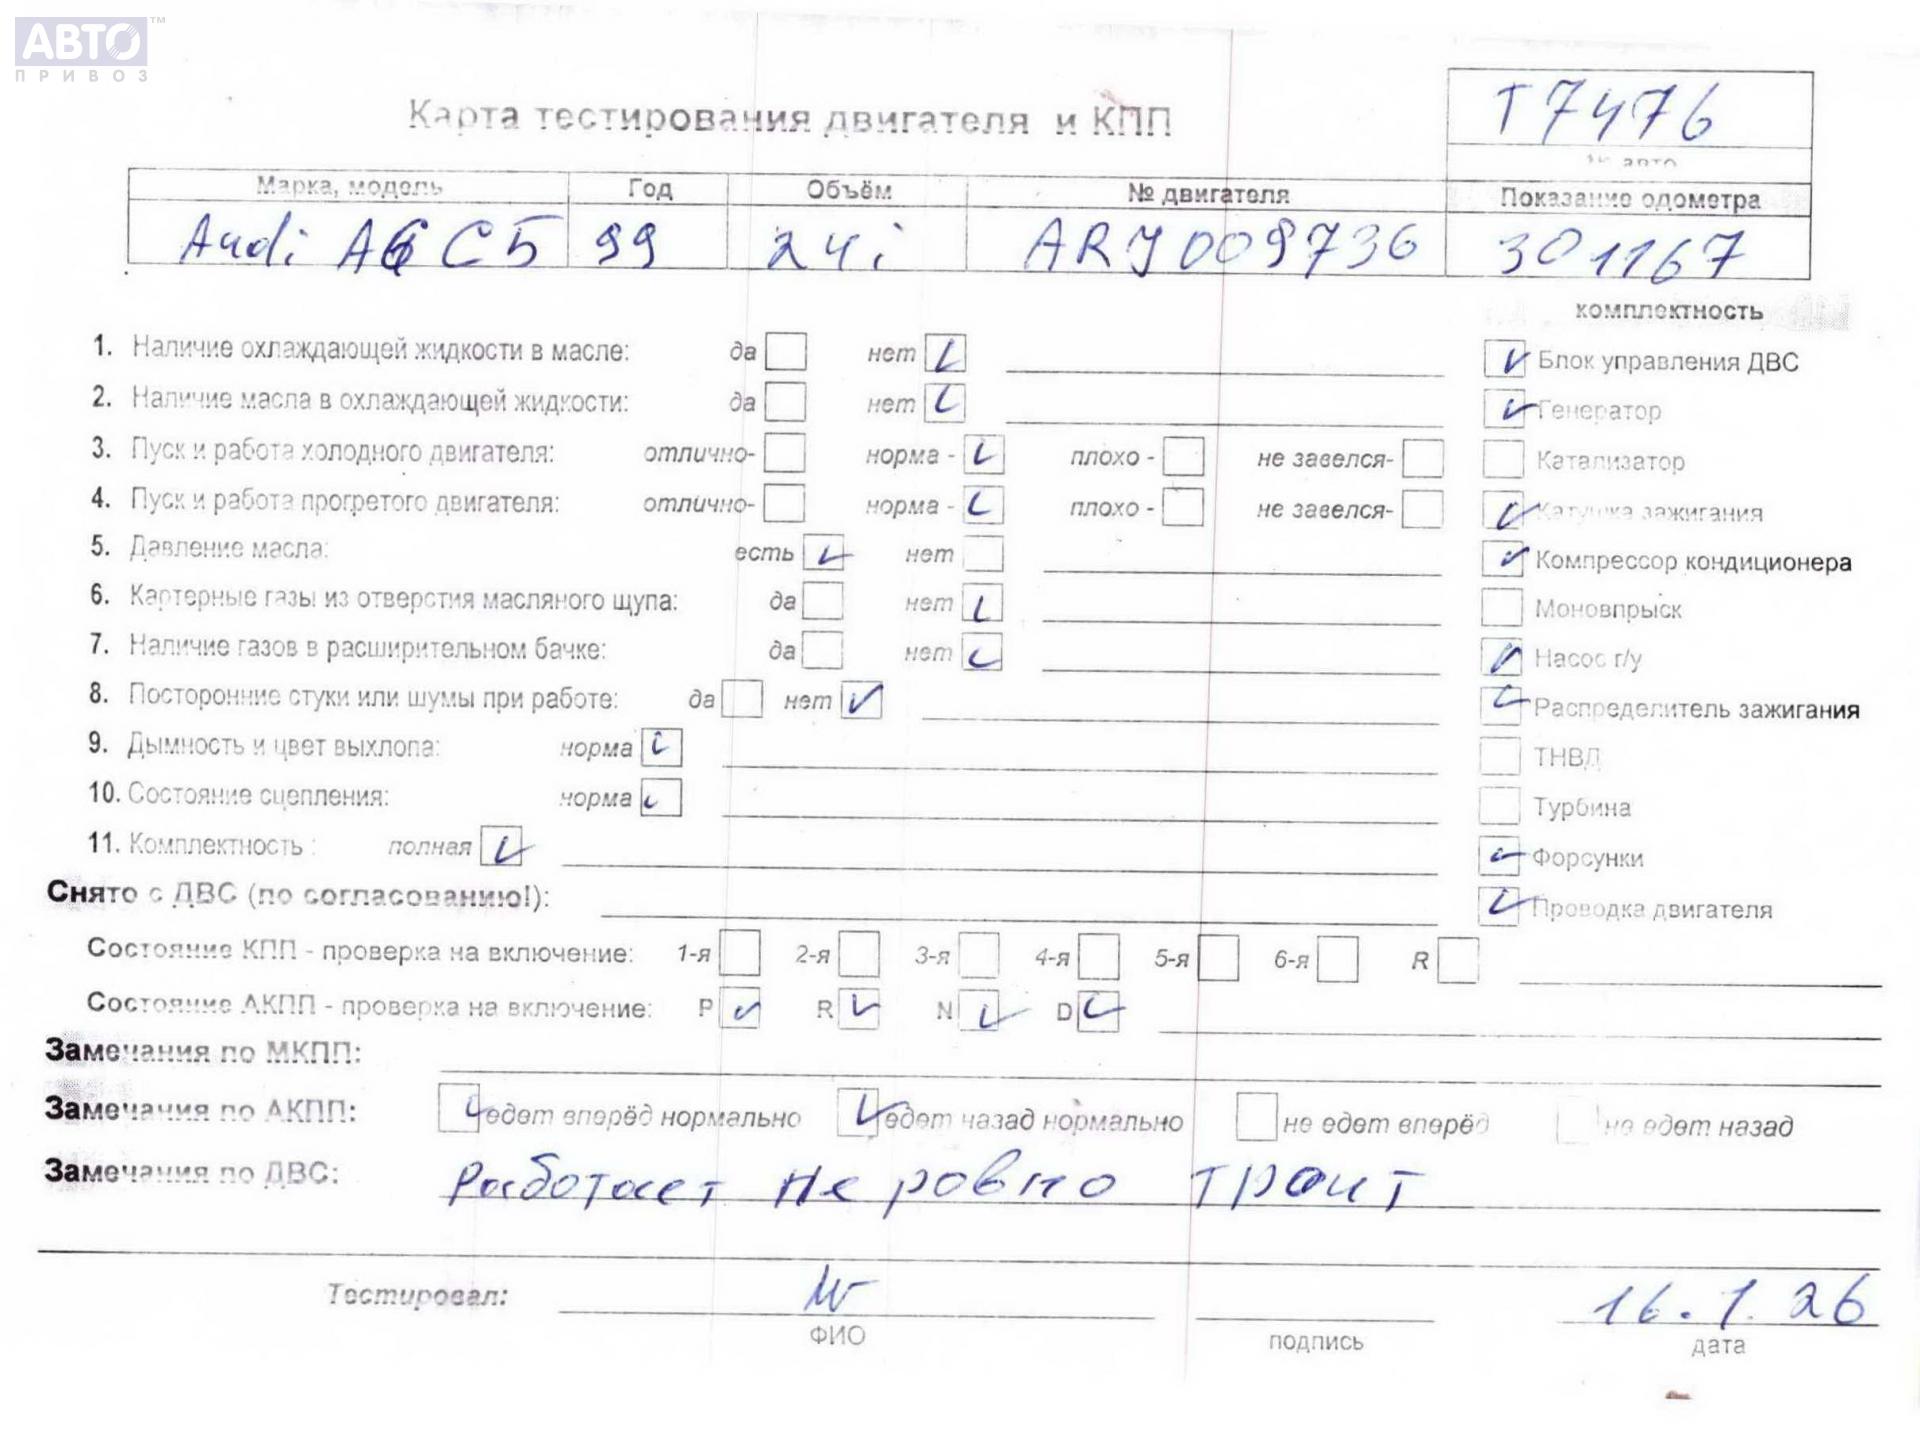 АВТО™
ПРИВОЗ
Карта тестирования двигателя и КПП
Т7476
№ авто
Марка, модель Год Объём № двигателя Показание одометра
Audi A6 C5 99 2.4i ARJ009736 301167
комплектность
1. Наличие охлаждающей жидкости в масле: да нет
Блок управления ДВС
2. Наличие масла в охлаждающей жидкости: да нет
Генератор
3. Пуск и работа холодного двигателя: отлично- норма - плохо - не завелся-
Катализатор
4. Пуск и работа прогретого двигателя: отлично- норма - плохо - не завелся-
Катушка зажигания
5. Давление масла: есть нет
Компрессор кондиционера
6. Картерные газы из отверстия масляного щупа: да нет
Моновпрыск
7. Наличие газов в расширительном бачке: да нет
Насос г/у
8. Посторонние стуки или шумы при работе: да нет
Распределитель зажигания
9. Дымность и цвет выхлопа: норма
ТНВД
10. Состояние сцепления: норма
Турбина
11. Комплектность : полная
Форсунки
Снято с ДВС (по согласованию!):
Проводка двигателя
Состояние КПП - проверка на включение: 1-я 2-я 3-я 4-я 5-я 6-я R
Состояние АКПП - проверка на включение: P R N D
Замечания по МКПП:
Замечания по АКПП: едет вперёд нормально едет назад нормально не едет вперёд не едет назад
Замечания по ДВС: Работает не ровно троит
Тестировал: 16.1.26
ФИО подпись дата